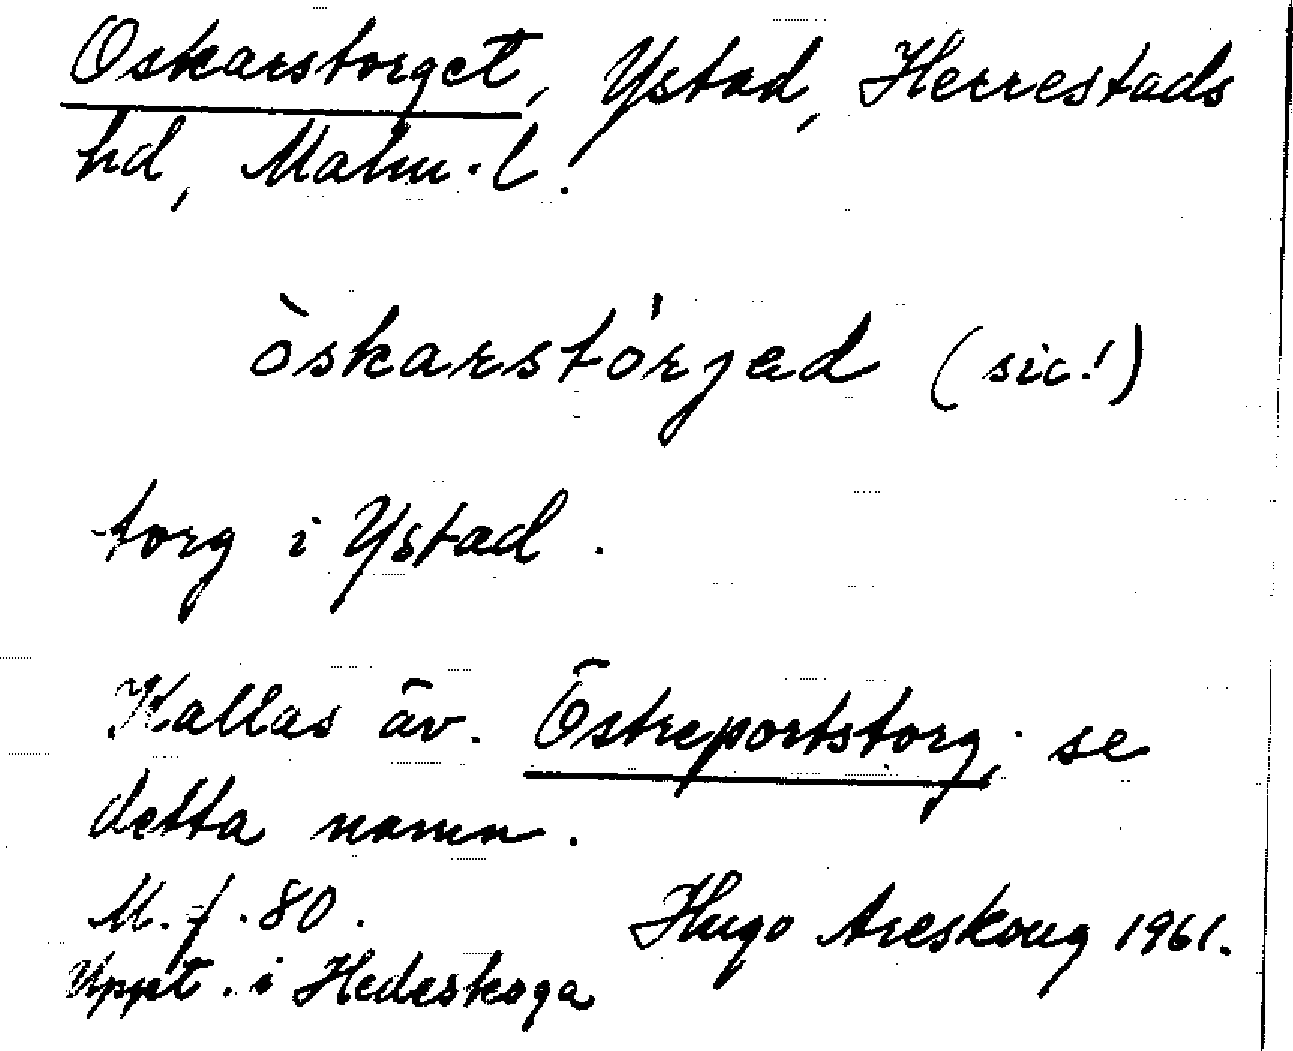 Oskarstorget, Ystad, Herrestads
hd, Malm. l.
òskarstórjed (sic!)
torg i Ystad.
Kallas äv. Östreportstorg, se
detta namn.
M. f. 80. Hugo Areskoug 1961.
Uppt. i Hedeskoga